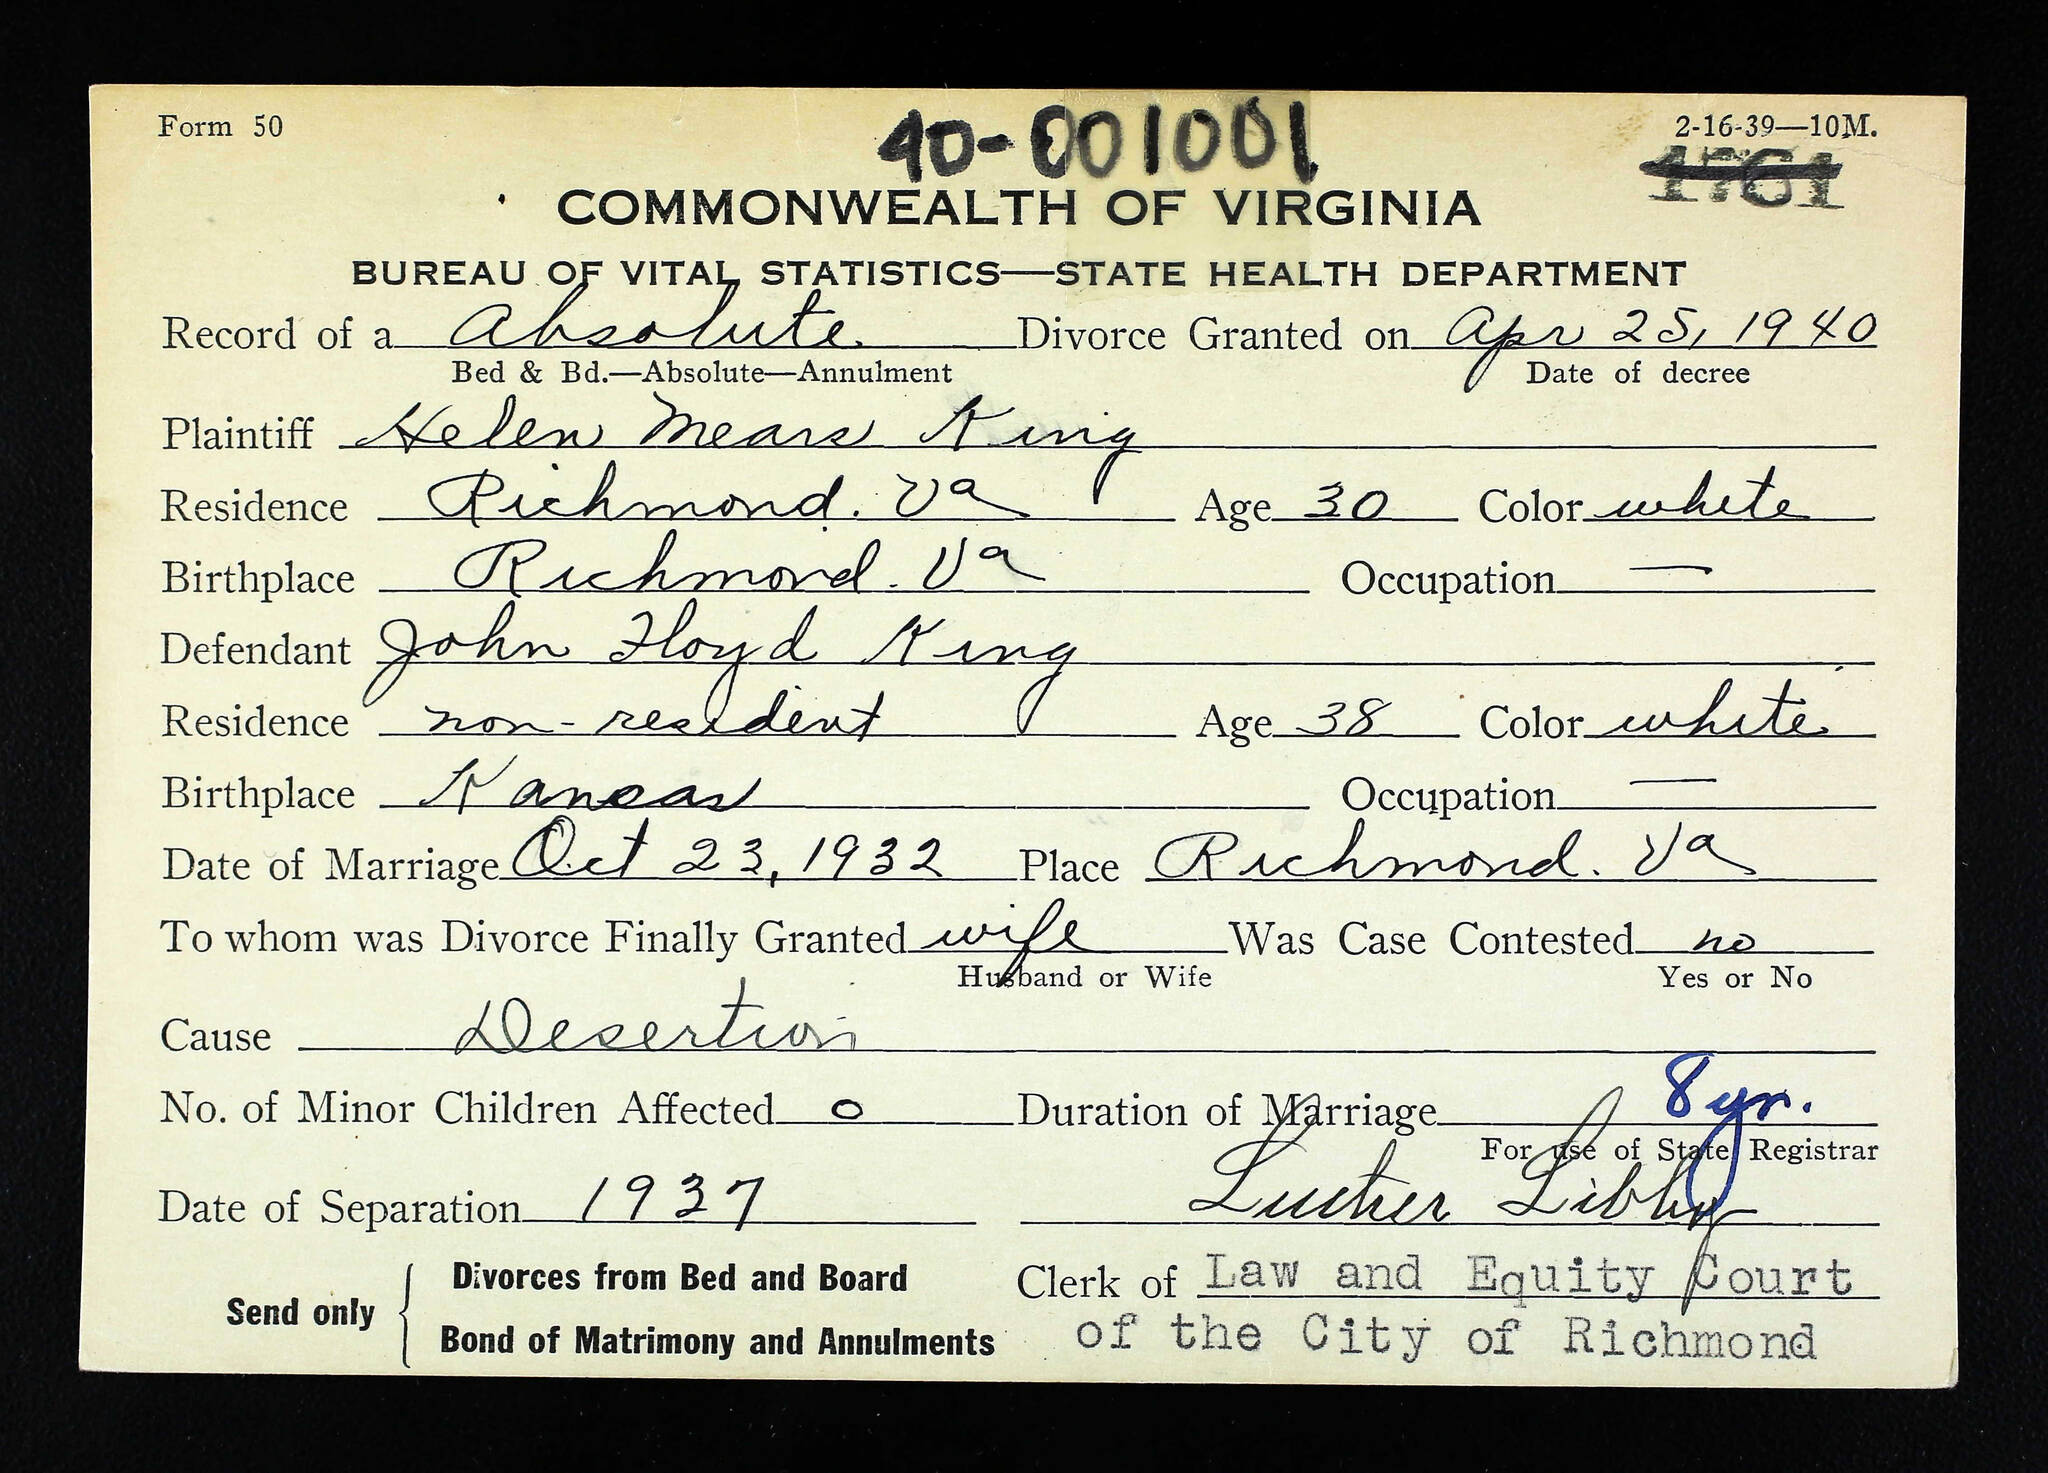 Form 50
40-001001
2-16-39—10M.
1761
COMMONWEALTH OF VIRGINIA
BUREAU OF VITAL STATISTICS—STATE HEALTH DEPARTMENT
Record of a Absolute Divorce Granted on Apr 25, 1940
Bed & Bd.—Absolute—Annulment Date of decree
Plaintiff Helen Mears King
Residence Richmond. Va Age 30 Color white
Birthplace Richmond. Va Occupation —
Defendant John Floyd King
Residence non-resident Age 38 Color white
Birthplace Kansas Occupation —
Date of Marriage Oct 23, 1932 Place Richmond. Va
To whom was Divorce Finally Granted wife Was Case Contested no
Husband or Wife Yes or No
Cause Desertion
No. of Minor Children Affected 0 Duration of Marriage 8 yr.
For use of State Registrar
Date of Separation 1937 Luther Libby
Send only { Divorces from Bed and Board
Bond of Matrimony and Annulments
Clerk of Law and Equity Court
of the City of Richmond